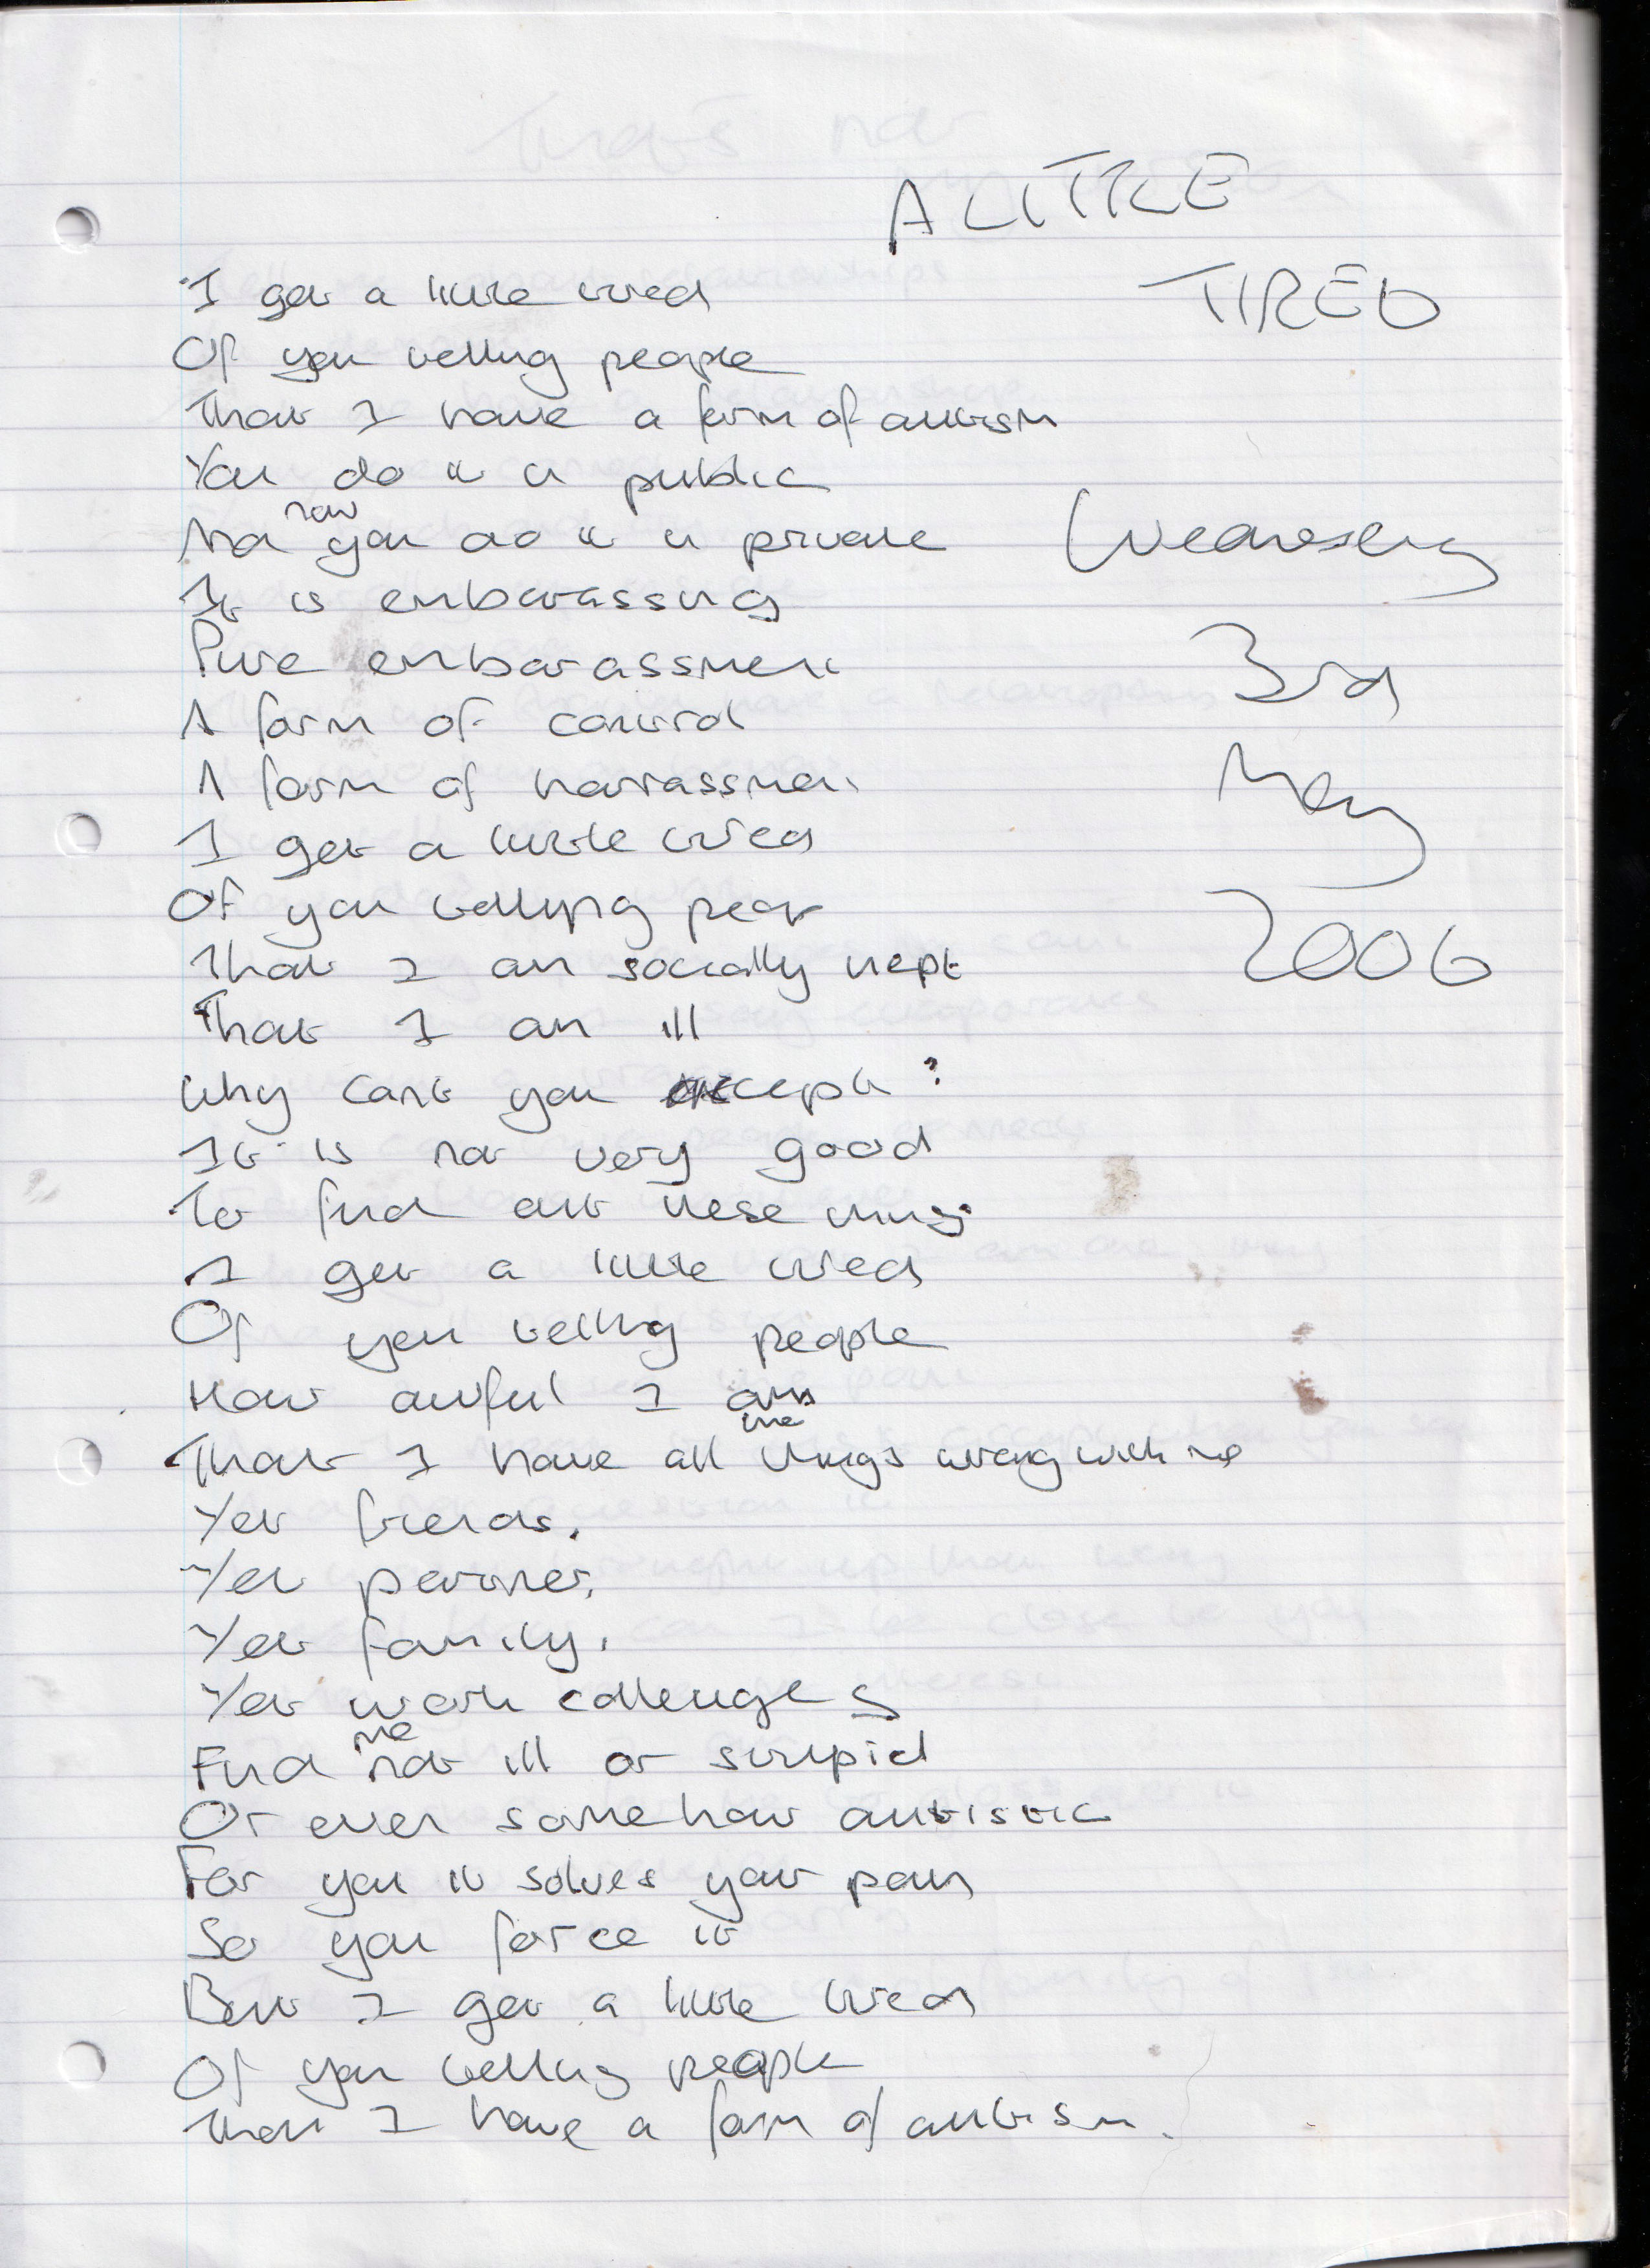 A LITTLE
TIRED
I get a little tired
Of you telling people
That I have a form of autism
You do it in public
And now you do it in private
Wednesday
It is embarassing
3rd
Pure embarassment
A form of control
May
A form of harrassment
I get a little tired
2006
Of you telling people
That I am socially inept
That I am ill
Why cant you accept it?
It is not very good
To find out these things
I get a little tired
Of you telling people
How awful I am
That I have all the things wrong with me
Yet friends.
Yet partner.
Yet family.
Yet work colleuges
Find me not ill or stupid
Or even somehow autistic
For you it solves your pain
So you force it
But I get a little tired
Of you telling people
That I have a form of autism.